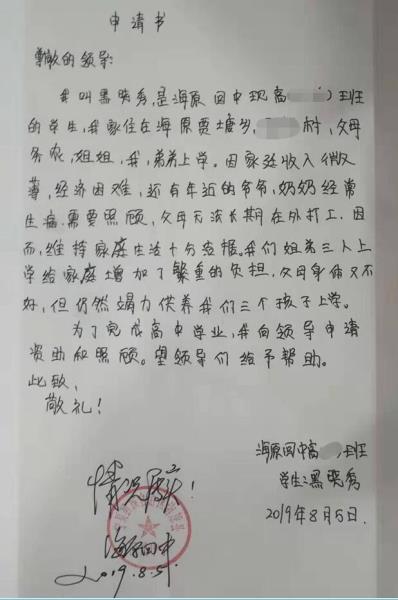 申请书
尊敬的领导:
我叫黑晓秀,是海原回中现高 )班
的学生,我家住在海原贾塘乡, 村,父母
务农,姐姐,我,弟弟上学。因家庭收入微
薄,经济困难,还有年近的爷爷,奶奶经常
生病需要照顾,父母无法长期在外打工.因
而,维持家庭生活十分拮据,我们姐弟三人上
学给家庭增加了繁重的负担,父母身体又不
好,但仍然竭力供养我们三个孩子上学。
为了完成高中学业,我向领导申请
资助和照顾。望领导们给予帮助。
此致,
敬礼!
海原回中高 )班
学生:黑晓秀
2019年8月5日.
情况属实!
海原回中
2019.8.5